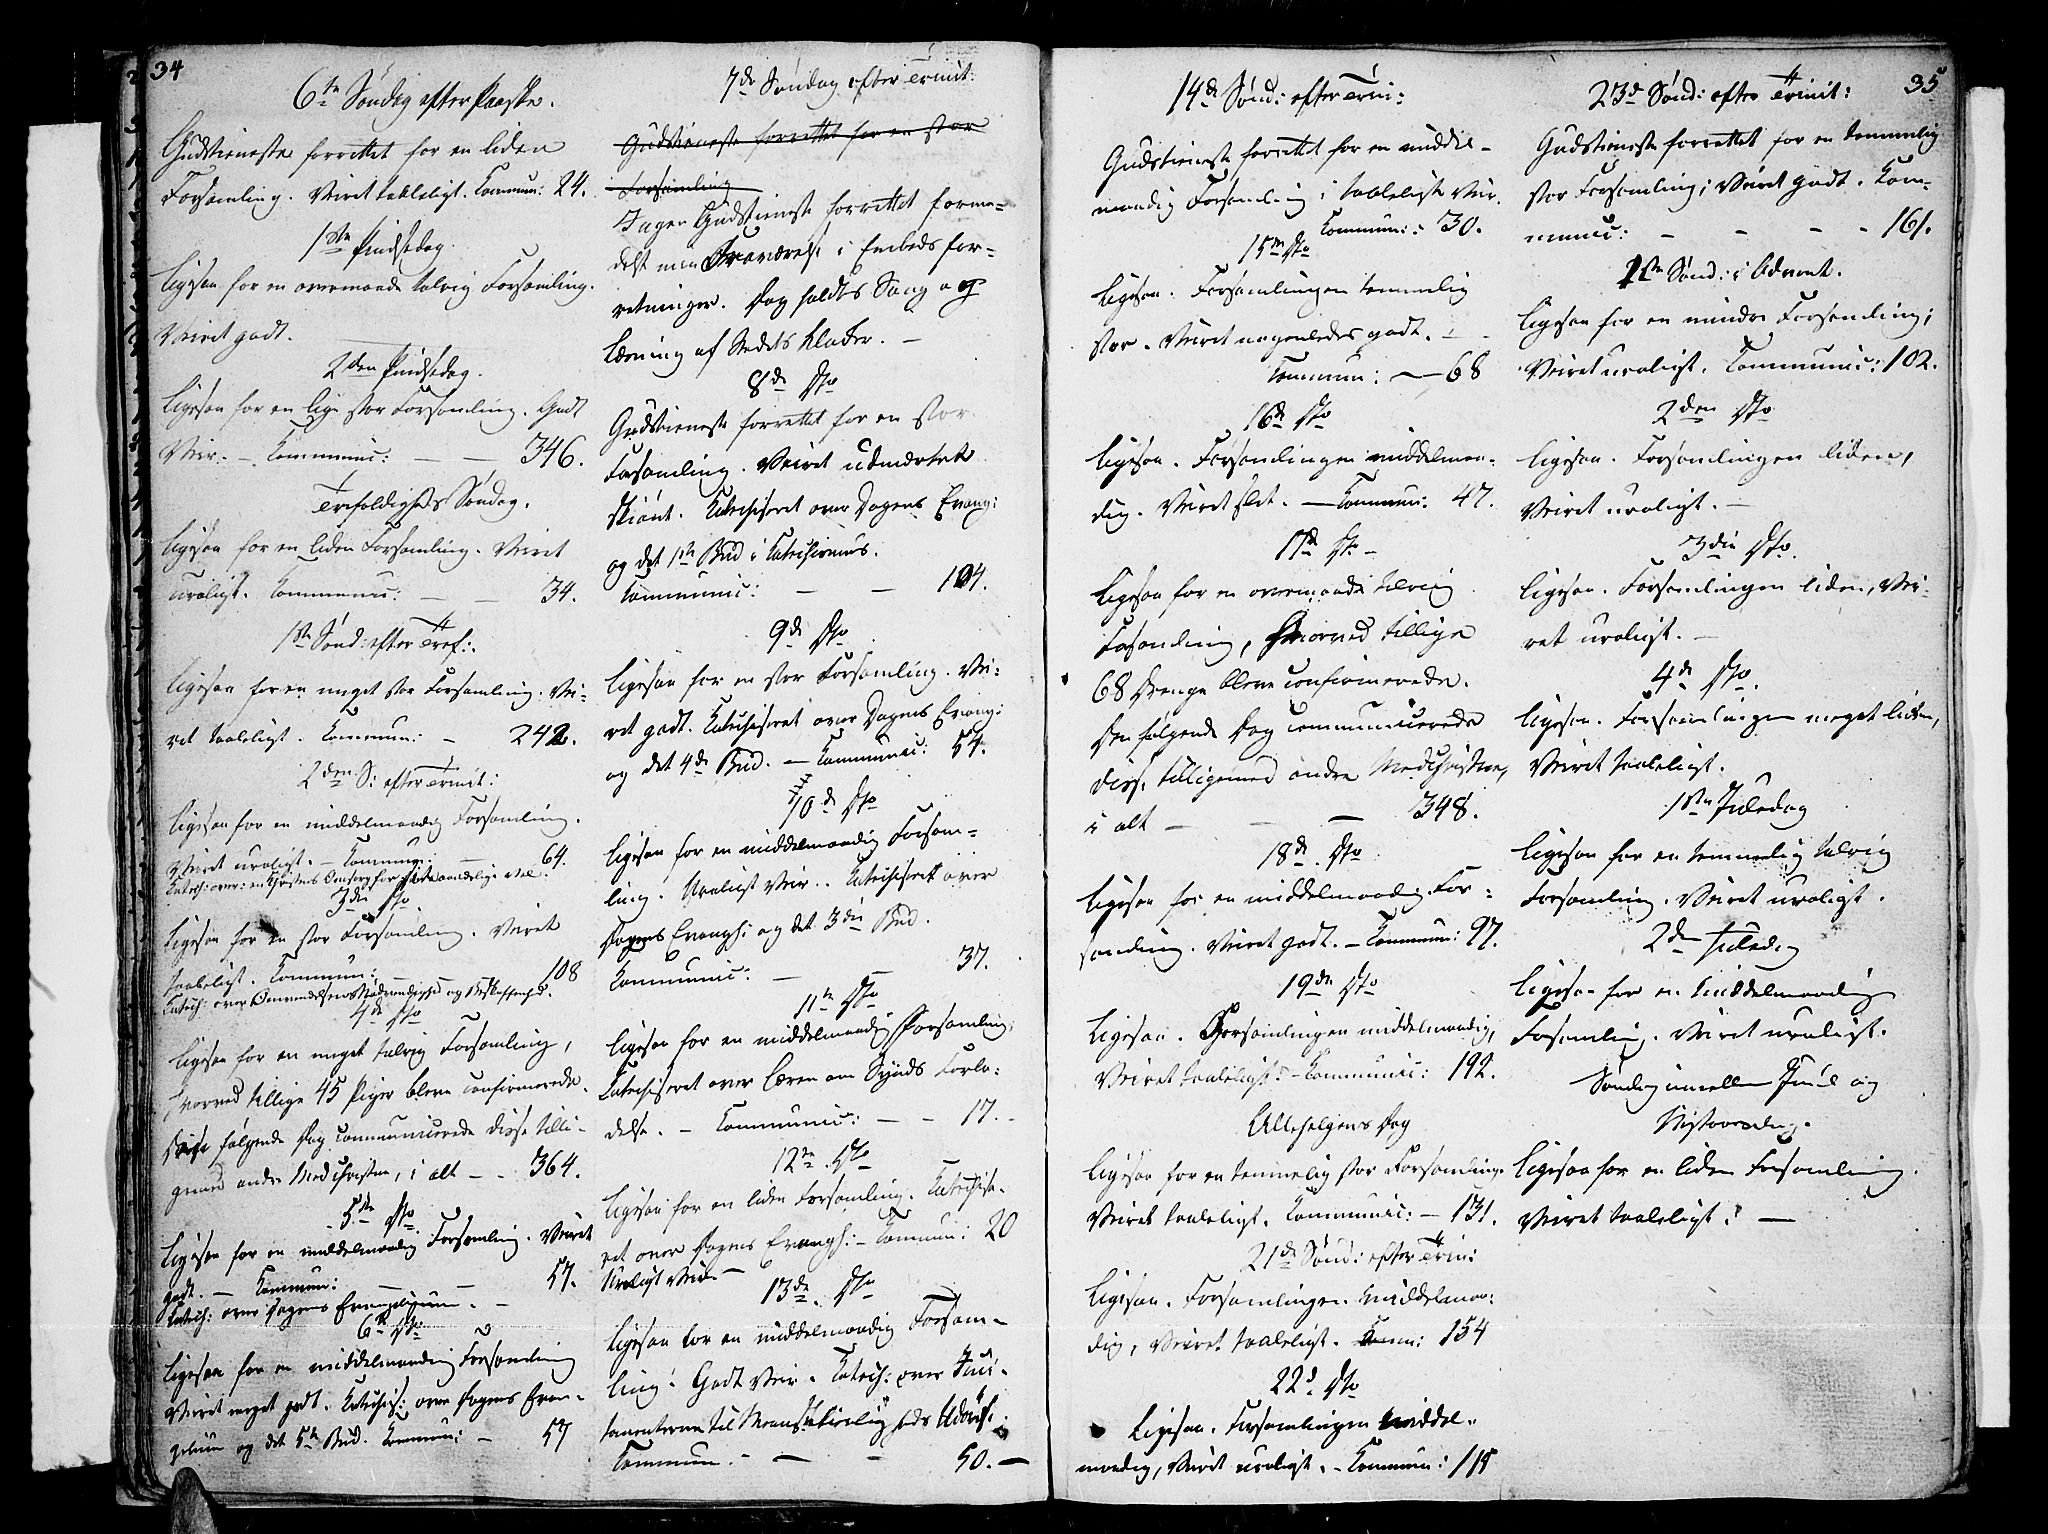 34
6te Søndag efter Paaske.
Gudstieneste forrettet for en liden
Forsamling. Veiret taaleligt. Commun: 24.
1ste Pindsedag.
Ligesaa for en overmaade talrig Forsamling.
Veiret godt.
2den Pindsedag.
Ligesaa for en lige stor Forsamling. Godt
Veir. – Communic: — — 346.
Trefoldigheds Søndag.
Ligesaa for en liden Forsamling. Veiret
uroligt. Communic: — — 34.
1ste Sønd: efter Tref:.
Ligesaa for en meget stor Forsamling. Vei-
ret taaleligt. Commun: – 242.
2den S: efter Trinit:
Ligesaa for en middelmaadig Forsamling.
Veiret uroligt. – Commun: — 64.
Catech: over: en Christens Omsorg for sin aandelige Vel.
3die Do.
Ligesaa for en stor Forsamling. Veiret
taaleligt. Commun: — 108
Catech: over Omvendelsens Nødvendighed og Beskaffenhed.
4de Do
Ligesaa for en meget talrig Forsamling,
hvorved tillige 45 Piger bleve confirmerede.
følgende Dag communicerede disse tilli-
gemed andre Medchristne, i alt – . 364.
5te Do
Ligesaa for en middelmaadig Forsamling. Veiret
godt. – Commun: — — 57.
Catech: over Dagens Evangelium. –
6te Do
Ligesaa for en middelmaadig Forsamling
Veiret meget godt. Catechis: over Dagens Evan-
gelium og det 5te Bud. Commun: – 57
7de Søndag efter Trinit:
Gudstieneste forrettet for en stor
Forsamling
Ingen Gudstieneste forrettet forme-
delst min Fraværelse i Embedsfor-
retninger. Dog holdtes Sang og
Læsning af Stedets Klokker. –
8de Do
Gudstieneste forrettet for en stor
Forsamling. Veiret udmærket
skiønt. Catechiseret over Dagens Evang:
og det 1ste Bud i Catechismus.
Communic: — — 104.
9de Do
Ligesaa for en stor Forsamling. Vei-
ret godt. Catechiseret over Dagens Evang:
og det 4de Bud. – Communic: 54.
10de Do
Ligesaa for en middelmaadig Forsam-
ling. Uroligt Veir. . Catechiseret over
Dagens Evangh: og det 3die Bud.
Communic: — — 37.
11te Do
Ligesaa for en middelmaadig Forsamling.
Catechiseret over Læren om Synds Forla-
delse. – Communic: — – 17. –
12te Do
Ligesaa for en liden Forsamling. Catechise-
ret over Dagens Evangh: – Commun: 20
Uroligt Veir. –
13de Do
Ligesaa for en middelmaadig Forsam-
ling. Godt Veir. Catech: over
til
Commun. – — – 50. –
14de Sønd: efter Trin:
Gudstieneste forrettet for en middel-
maadig Forsamling i taaleligt Veir.
Commun: 30.
15te Do
Ligesaa. Forsamlingen temmelig
stor. Veiret nogenledes godt. –
Commun: – 68
16de Do
Ligesaa. Forsamlingen middelmaa-
dig. Veiret slet. – Commun: 47.
17de Do –
Ligesaa for en overmaade talrig
Forsamling, hvorved tillige
68 Drenge bleve confirmerede.
Den følgende Dag communicerede
disse tilligemed andre Medchristne,
i alt — — 348.
18de Do
Ligesaa for en middelmaadig For-
samling. Veiret godt. – Commun: 97.
19de Do
Ligesaa. Forsamlingen middelmaadig,
Veiret taaleligt. – Communic: 192.
Allehelgens Dag
Ligesaa for en temmelig stor Forsamling.
Veiret taaleligt. Communic: – 131.
21de Sønd: efter Trin:
Ligesaa. Forsamlingen middelmaa-
dig, Veiret taaleligt. Comm: 154
22d Do
Ligesaa. Forsamlingen middel-
maadig, Veiret uroligt. – Commun: 115
35
23de Sønd: efter Trinit:
Gudstieneste forrettet for en temmelig
stor Forsamling; Veiret godt. Com-
munic: – – – – 161.
1ste Sønd: i Advent.
Ligesaa for en mindre Forsamling;
Veiret uroligt. Communic: 102.
2den Do
Ligesaa. Forsamlingen liden,
Veiret uroligt. –
3die Do.
Ligesaa. Forsamlingen liden, Vei-
ret uroligt. –
4de Do.
Ligesaa. Forsamlingen meget liden,
Veiret taaleligt.
1ste Juledag
Ligesaa for en temmelig talrig
Forsamling. Veiret uroligt.
2den Juledag
Ligesaa for en middelmaadig
Forsamling. Veiret uroligt.
Søndag imellem Juul og
Nytaarsdag.
Ligesaa for en liden Forsamling.
Veiret taaleligt. –